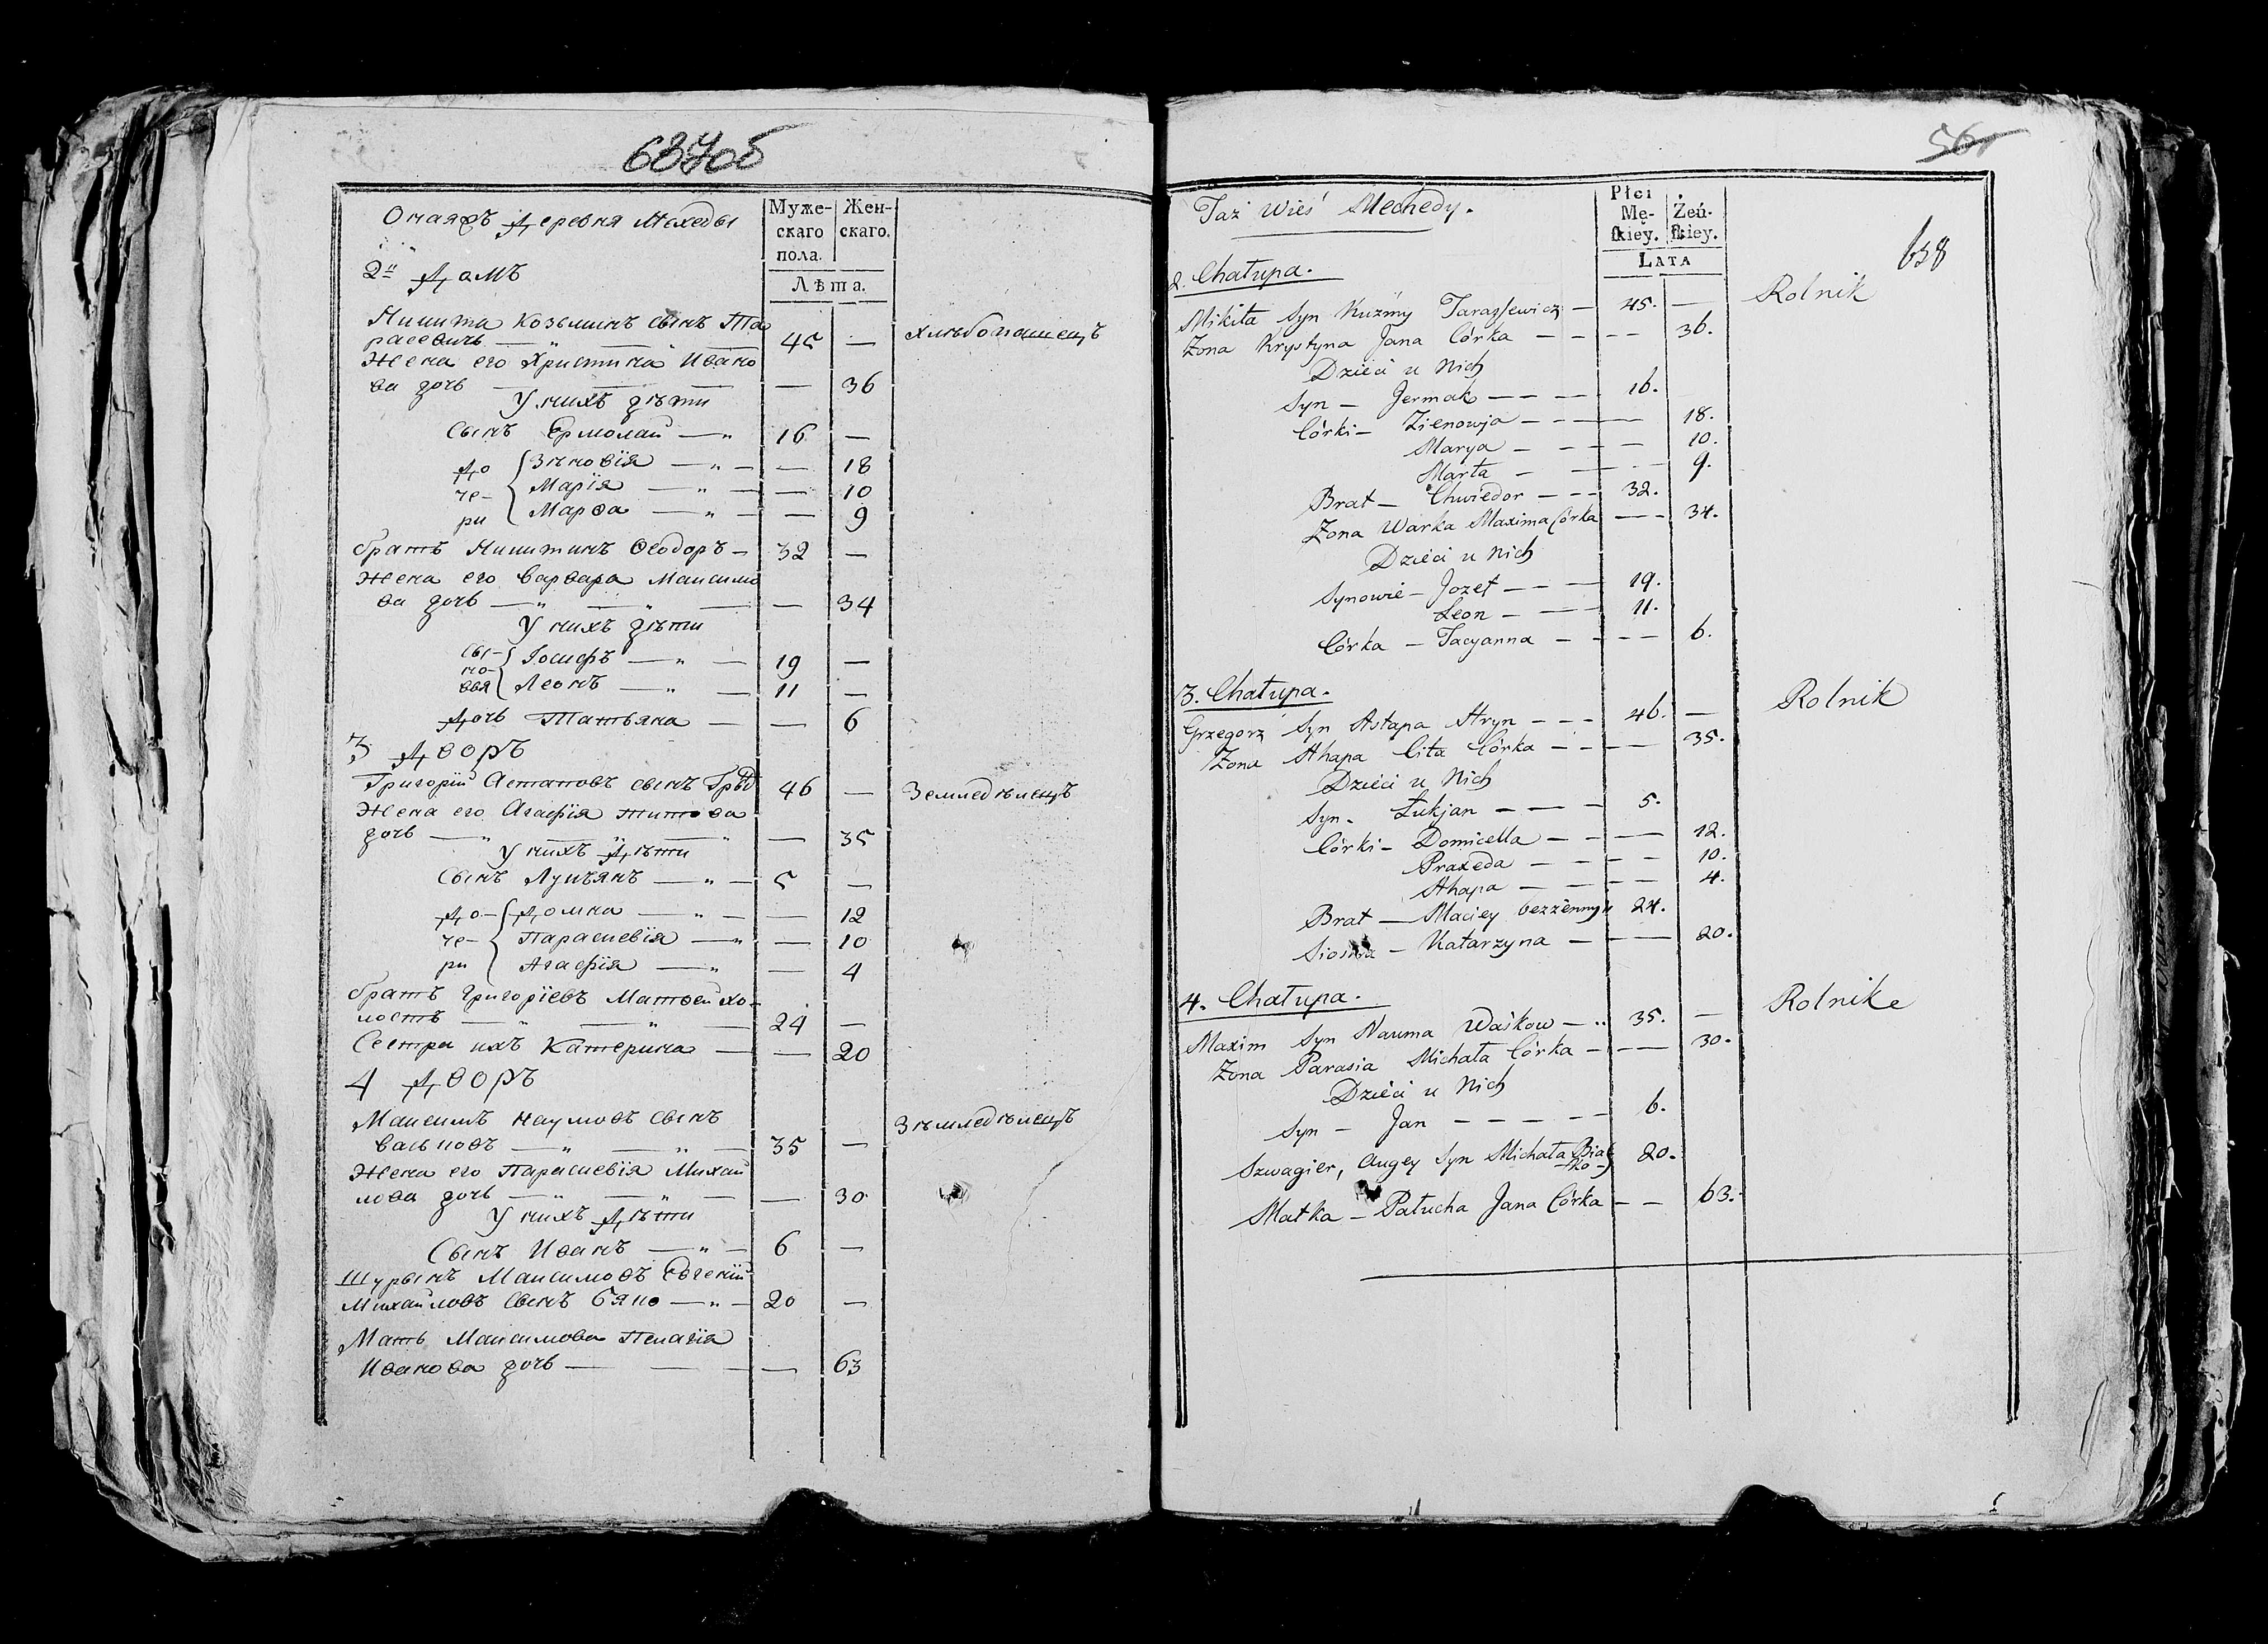 637об
Онаяжъ деревня Мехеды
Муже- Жен-
скаго скаго.
пола.
Лѣта.
2й Домъ
Никита Козьминъ сынъ Та
расевичь — " — — 45 — хлѣбопашецъ
Жена его Христина Ивано
ва дочь — — — — 36
У нихъ дѣти
Сынъ Ермолай — " 16 —
До { Зѣновія — " — — 18
че- { Марія — " — — 10
ри { Марѳа — " — — 9
братъ Никитинъ Ѳеодоръ — 32 —
Жена его Варвара Максимо
ва дочь — " — " — — 34
У нихъ дѣти
сы- { Іосифъ — " — 19 —
но-
вья { Леонъ — " — 11 —
Дочь Татьяна — — 6
3 Дворъ
Григорій Астаповъ сынъ 46 — Земледѣлецъ
Жена его Агафія титова
дочь — " — " — " — 35
У нихъ Дѣти
Сынъ Лукъянъ — " — 5 —
До- { Домна — " — — 12
че- { Параскевія — " — 10
ри { Агафія — " — 4
братъ Григоріевъ Матвей хо-
лостъ — " — " — 24 —
Сестра ихъ Катерина — — 20
4 Дворъ
Максимъ Наумовъ сынъ Земледѣлецъ
Васьковъ — " — " — 35 —
Жена его Параскевія Михай
лова дочь — " — " — — 30
У нихъ Дѣти
Сынъ Иванъ — " — 6 —
Шуринъ Максимовъ Евгеній
Михайловъ сынъ Бяло — " — 20 —
Мать Максимова Пелагія
Иванова дочь — — — — 63
56
638
Taż Wieś Mechedy.
Płci
Mę- Żeń-
ſkiey. ſkiey.
LATA
2. Chałupa.
Mikita Syn Kuźmy Tarassewicz — 45. — Rolnik
Żona Krystyna Jana Córka — — — — 36.
Dzieci u Nich
Syn — Jermak — — — 16.
Córki — Zienowja — — — — 18.
Marya — — — — 10.
Marta — — — — 9.
Brat — Chwiedor — — — 32.
Żona Warka Maxima Córka — — 34.
Dzieci u Nich
Synowie — Jozef — — — 19.
Leon — — — 11.
Córka — Tacyanna — — — — 6.
3. Chałupa.
Grzegorz Syn Astapa Hryn — — — 46. — Rolnik
Żona Ahapa Cita Córka — — — 35.
Dzieci u Nich
Syn. Łukjan — — — 5.
Córki — Domicella — — — 12.
Praxeda — — — — 10.
Ahapa — — — — 4.
Brat — Maciey bezżenny 24.
Siostra — Katarzyna — — — 20.
4. Chałupa.
Maxim Syn Nauma Waśkow — " 35. — Rolnik
Żona Parasia Michała Córka — — — 30.
Dzieci u Nich
Syn — Jan — — — — — 6.
Szwagier, Augey Syn Michała Bia(
-ło-) 20.
Matka — Pałucha Jana Córka — — 63.